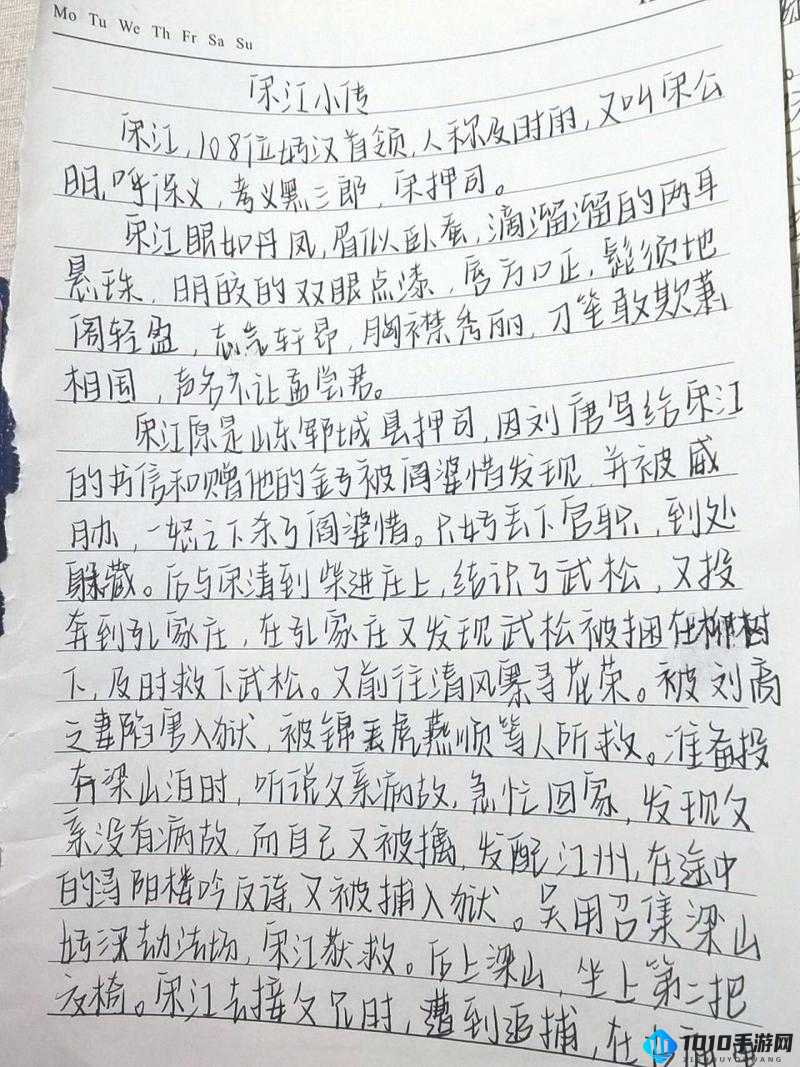 Mo Tu We Th Fr Sa Su
宋江小传
宋江,108位好汉首领,人称及时雨,又叫宋公
明,呼保义,孝义黑三郎,宋押司。
宋江眼如丹凤,眉似卧蚕,滴溜溜的两耳
悬珠,明皎的双眼点漆,唇方口正,髭须地
阁轻盈,志气轩昂,胸襟秀丽,刀笔敢欺萧
相国,声名不让孟尝君。
宋江原是山东郓城县押司,因刘唐写给宋江
的书信和赠他的金被阎婆惜发现,并被威
胁,一怒之下杀了阎婆惜。只好丢下官职,到处
躲藏。后与宋清到柴进庄上,结识了武松,又投
奔到孔家庄,在孔家庄又发现武松被捆在柳树
下,及时救下武松。又前往清风寨寻花荣。被刘高
之妻陷害入狱,被锦毛虎燕顺等人所救。准备投
奔梁山泊时,听说父亲病故,急忙回家,发现父
亲没有病故,而自己又被擒,发配江州,在途中
的浔阳楼吟反诗,又被捕入狱。吴用召集梁山
好汉劫法场,宋江获救。后上梁山,坐上第二把
交椅。宋江去接父兄时,遭到追捕,在
1010手游网